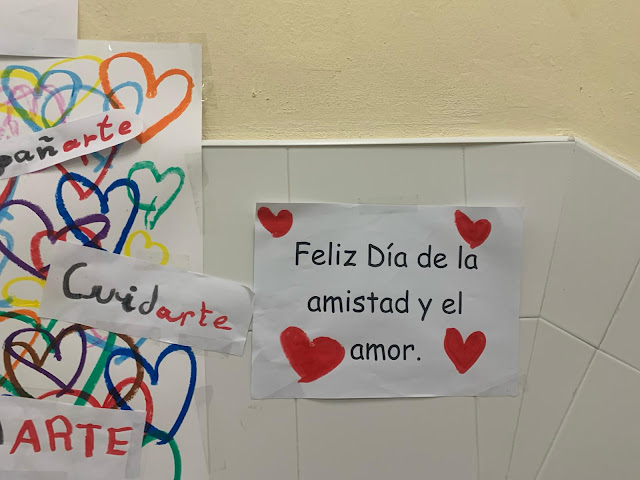 pañarte
Cuidarte
ARTE
Feliz Día de la
amistad y el
amor.